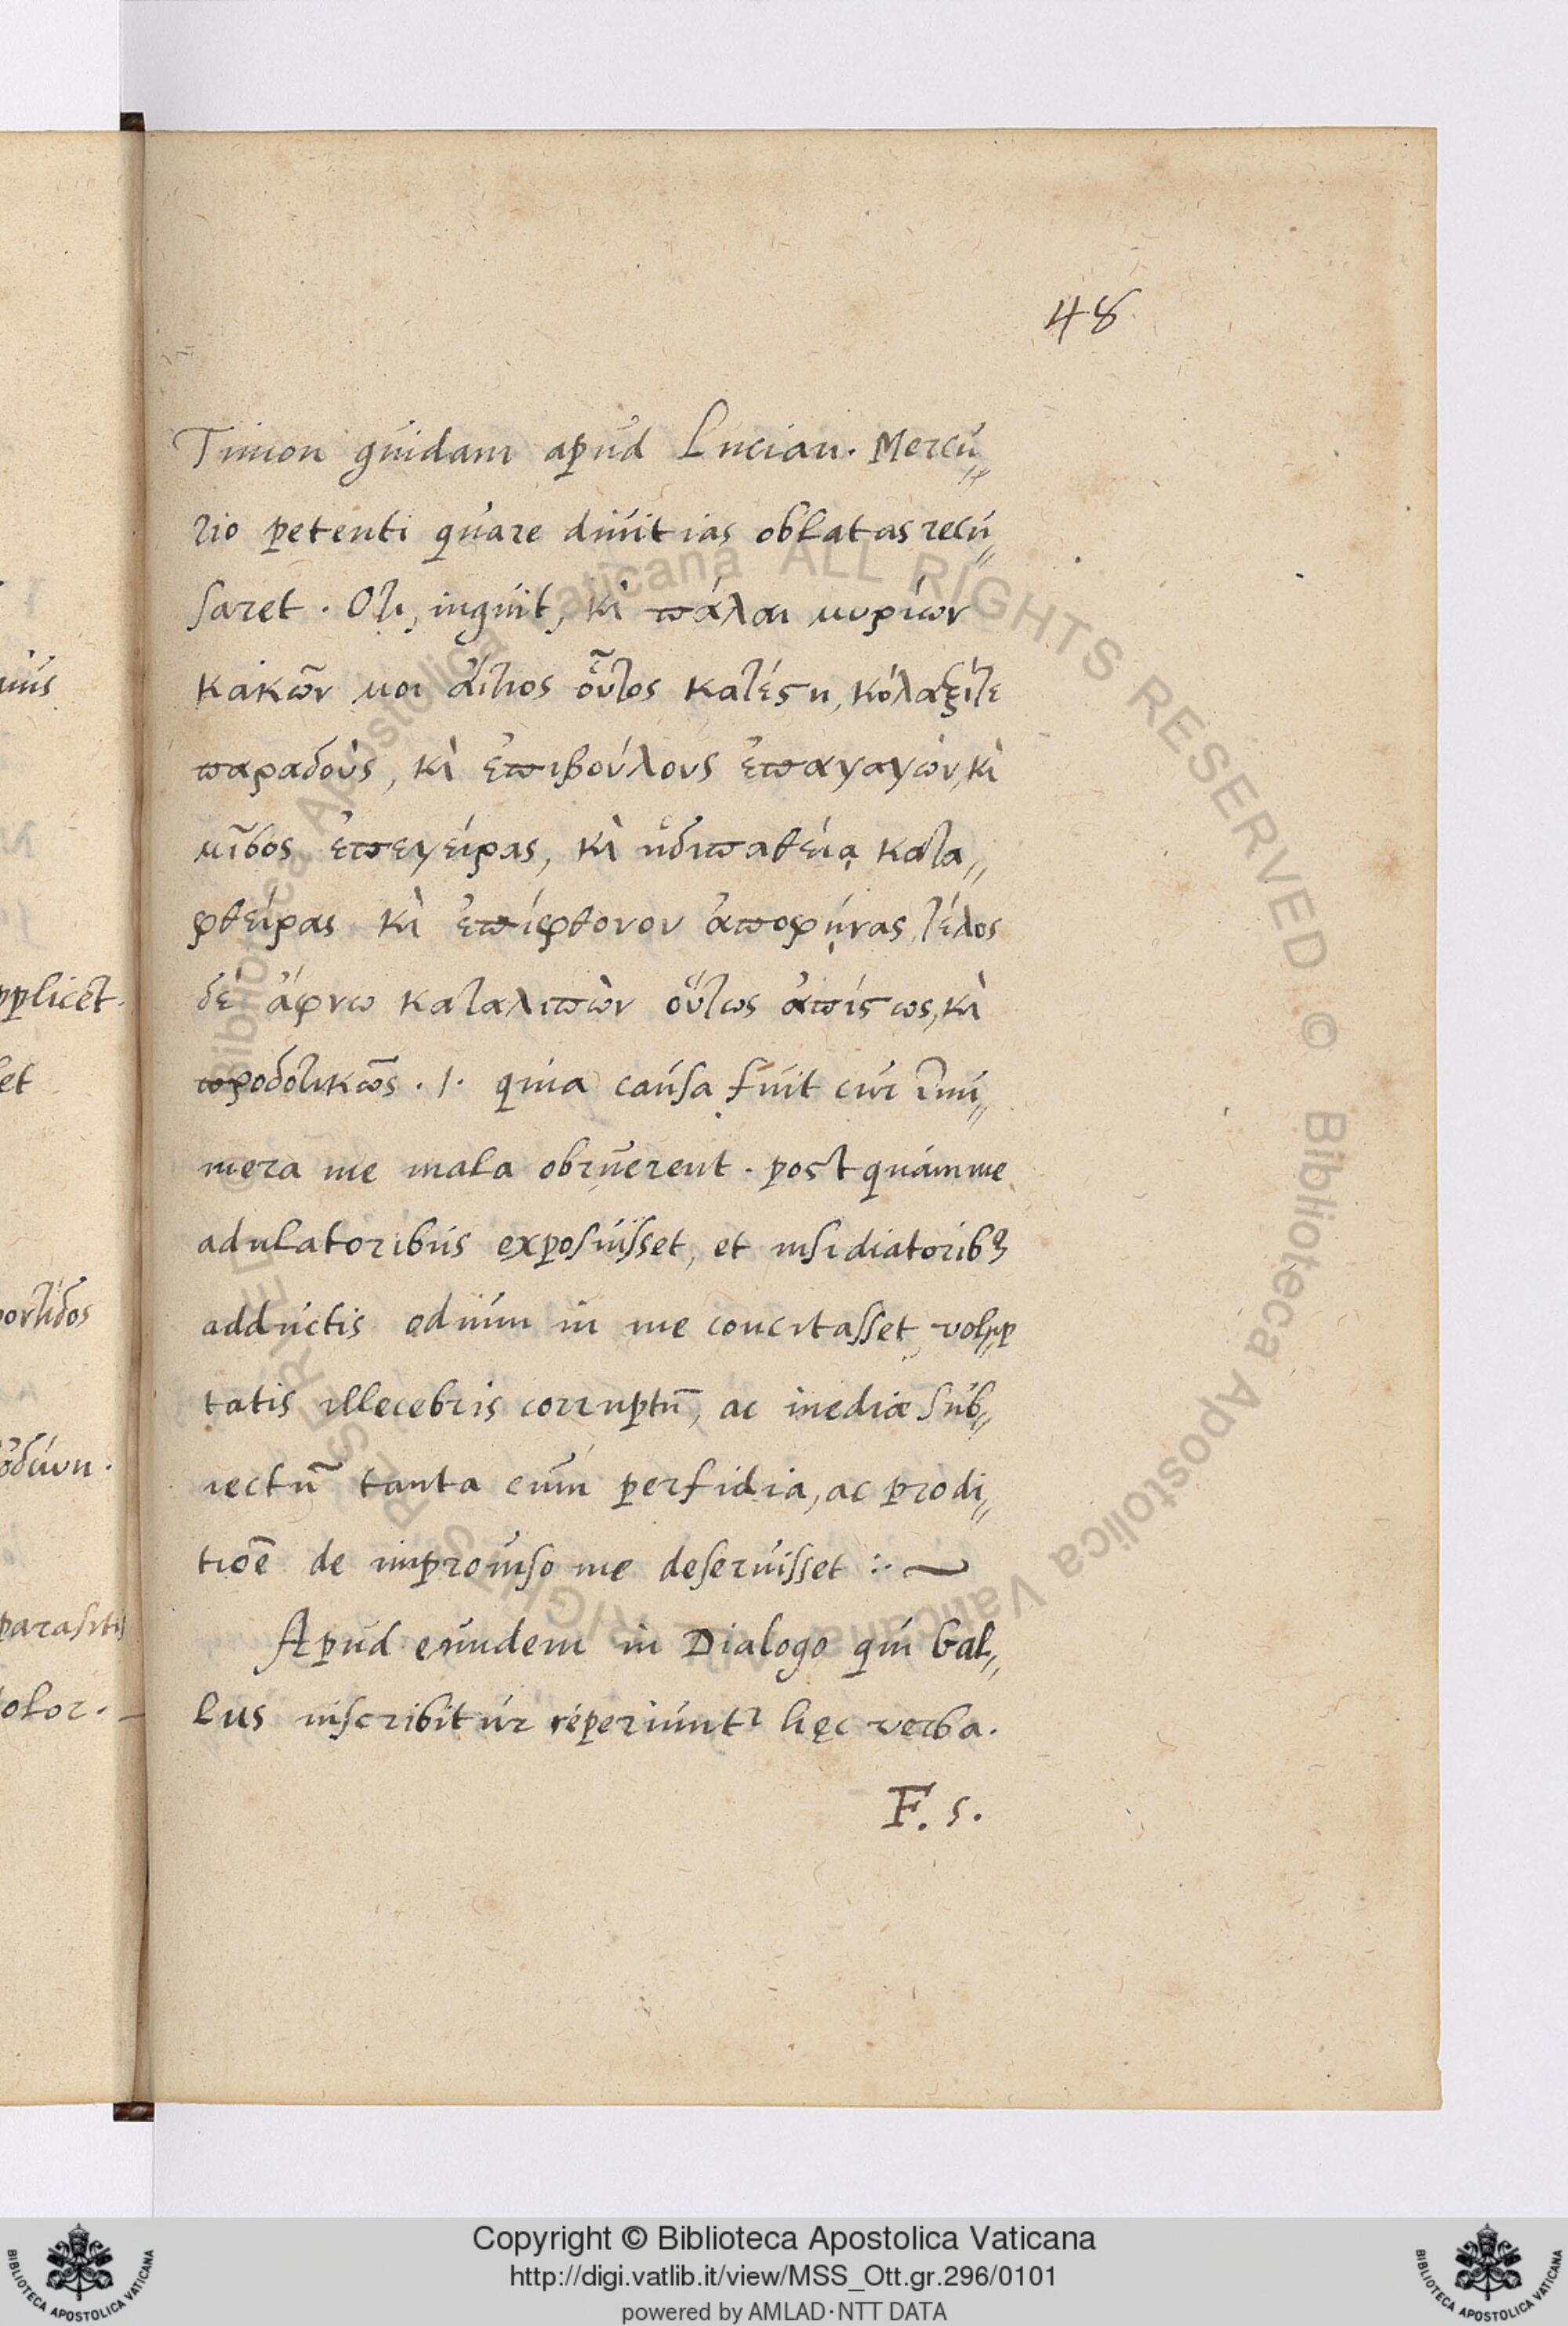 48
Timon quidam apud Lucian. Mercu„
rio petenti quare diuitias oblatas recu„
saret. Oτι, inquit, κὶ πάλαι μυρίων
κακῶν μοι ἄιτιος οὗτος κατέςη, κόλαξίτε
παραδοὺς, κὶ ἐπιβούλους ἐπαγαγὼν, κὶ
μῖσος ἐπεγείρας, κὶ ἡδυπαθείᾳ κατα„
φθείρας κὶ ἐπίφθονον ἀποφήνας, τέλος
δὲ ἄφνω καταλιπὼν οὕτως ἀπίςως, κὶ
προδοτικῶς. 1. quia causa fuit cur īnu„
mera me mala obruerent. post quam me
adulatoribus exposuisset, et insidiatorib9
adductis odium in me concitasset, volup„
tatis illecebris corruptū, ac inediæ sub„
iectū tanta cum perfidia, ac prodi„
tioē de improuiso me deseruisset :~
Apud eundem in Dialogo qui Gal„
lus inscribitur reperiunt2 hęc verba.
F. 5.
uiis
pplicet.
et
ορτίδος
parasitis
olor.
Copyright © Biblioteca Apostolica Vaticana
http://digi.vatlib.it/view/MSS_Ott.gr.296/0101
powered by AMLAD·NTT DATA
BIBLIOTECA APOSTOLICA VATICANA
BIBLIOTECA APOSTOLICA VATICANA
© Biblioteca Apostolica Vaticana ALL RIGHTS RESERVED © Biblioteca Apostolica Vaticana ALL RIGHTS RESERVED